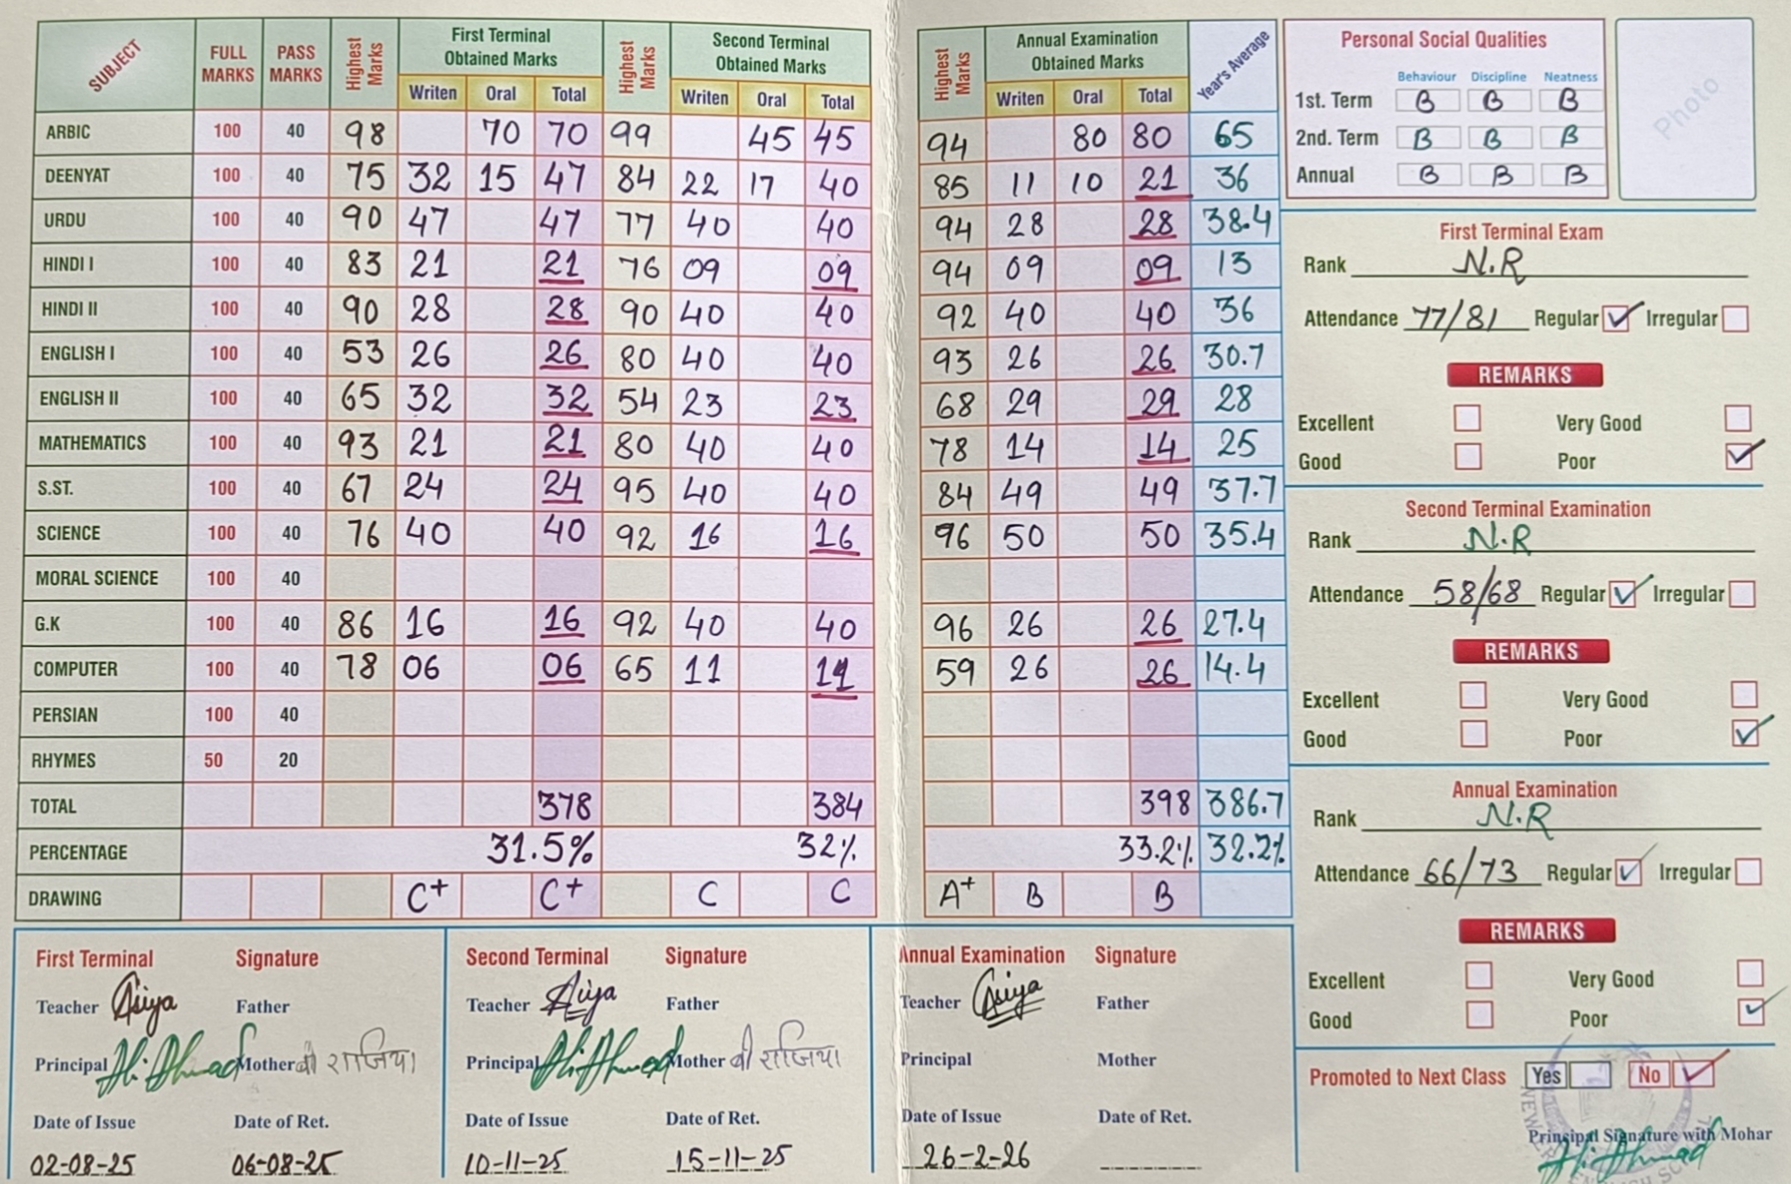 SUBJECT FULL MARKS PASS MARKS Highest Marks First Terminal Obtained Marks Highest Marks Second Terminal Obtained Marks Highest Marks Annual Examination Obtained Marks Year's Average
Writen Oral Total Writen Oral Total Writen Oral Total
ARBIC 100 40 98 70 70 99 45 45 94 80 80 65
DEENYAT 100 40 75 32 15 47 84 22 17 40 85 11 10 21 36
URDU 100 40 90 47 47 77 40 40 94 28 28 38.4
HINDI I 100 40 83 21 21 76 09 09 94 09 09 13
HINDI II 100 40 90 28 28 90 40 40 92 40 40 36
ENGLISH I 100 40 53 26 26 80 40 40 93 26 26 30.7
ENGLISH II 100 40 65 32 32 54 23 23 68 29 29 28
MATHEMATICS 100 40 93 21 21 80 40 40 78 14 14 25
S.ST. 100 40 67 24 24 95 40 40 84 49 49 37.7
SCIENCE 100 40 76 40 40 92 16 16 96 50 50 35.4
MORAL SCIENCE 100 40
G.K 100 40 86 16 16 92 40 40 96 26 26 27.4
COMPUTER 100 40 78 06 06 65 11 11 59 26 26 14.4
PERSIAN 100 40
RHYMES 50 20
TOTAL 378 384 398 386.7
PERCENTAGE 31.5% 32% 33.2% 32.2%
DRAWING C+ C+ C C A+ B B
Personal Social Qualities
Behaviour Discipline Neatness
1st. Term B B B
2nd. Term B B B
Annual B B B
Photo
First Terminal Exam
Rank N.R
Attendance 77/81 Regular Irregular
REMARKS
Excellent Very Good
Good Poor
Second Terminal Examination
Rank N.R
Attendance 58/68 Regular Irregular
REMARKS
Excellent Very Good
Good Poor
Annual Examination
Rank N.R
Attendance 66/73 Regular Irregular
REMARKS
Excellent Very Good
Good Poor
Promoted to Next Class Yes No
Principal Signature with Mohar
Ali Ahmad
First Terminal Signature
Teacher Asiya Father
Principal Ali Ahmad Mother बी राजिया
Date of Issue Date of Ret.
02-08-25 06-08-25
Second Terminal Signature
Teacher Asiya Father
Principal Ali Ahmad Mother बी राजिया
Date of Issue Date of Ret.
10-11-25 15-11-25
Annual Examination Signature
Teacher Asiya Father
Principal Mother
Date of Issue Date of Ret.
26-2-26